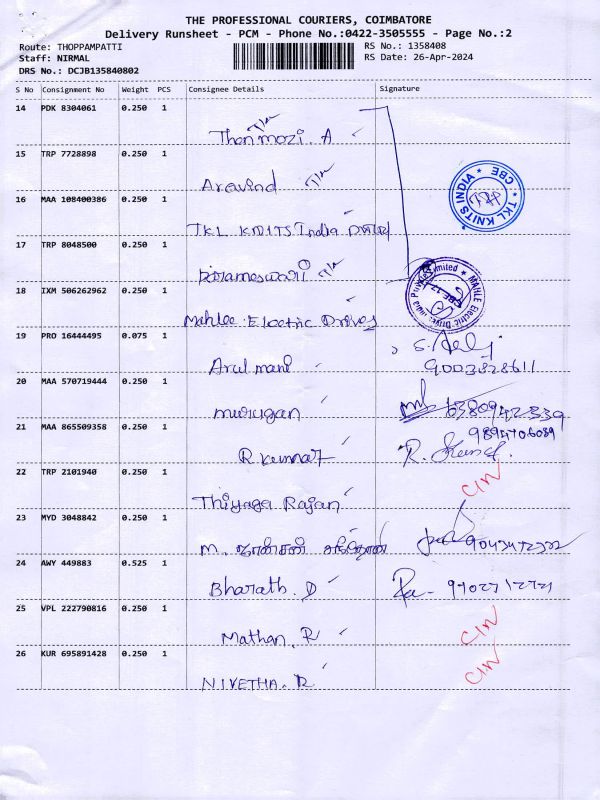 THE PROFESSIONAL COURIERS, COIMBATORE
Delivery Runsheet - PCM - Phone No.:0422-3505555 - Page No.:2
Route: THOPPAMPATTI
RS No.: 1358408
Staff: NIRMAL
RS Date: 26-Apr-2024
DRS No.: DCJB135840802
S No Consignment No Weight PCS Consignee Details Signature
14 PDK 8304061 0.250 1
Thenmozi. A
15 TRP 7728898 0.250 1
Aravind
16 MAA 108400386 0.250 1
TKL KNITS India
TKL KNITS INDIA ★ CBE ★
17 TRP 8048500 0.250 1
18 IXM 506262962 0.250 1
Mahlee Electric Drives
★ MAHLE Electric Drives India Private Limited
19 PRO 16444495 0.075 1
Arul mani
9003828611
20 MAA 570719444 0.250 1
murugan
6380942339
21 MAA 865509358 0.250 1
9894706089
R kumar
22 TRP 2101940 0.250 1
Thiyaga Rajan
23 MYD 3048842 0.250 1
M.
24 AWY 449883 0.525 1
Bharath. D
25 VPL 222790816 0.250 1
Mathan. R
26 KUR 695891428 0.250 1
NIVETHA. R